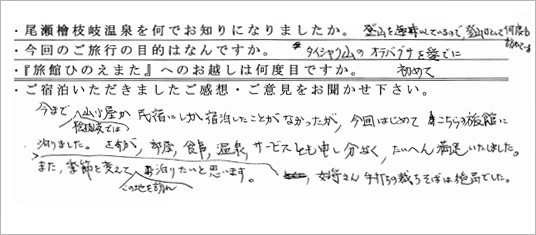 ・尾瀬檜枝岐温泉を何でお知りになりましたか。 登山を趣味にしているので、登山口として何度も訪れている
・今回のご旅行の目的はなんですか。 タイシャク山のオサバグサを見に
・『旅館ひのえまた』へのお越しは何度目ですか。 初めて
・ご宿泊いただきましたご感想・ご意見をお聞かせ下さい。
今まで 桧枝岐では 山小屋か民宿にしか宿泊したことがなかったが、今回はじめてこちらの旅館に
泊りました。 部屋、食事、温泉、サービスとも申し分なく、たいへん満足いたしました。
また、季節を変えて この地を訪れ 泊りたいと思います。 女将さん手打ちの裁ちそばは絶品でした。